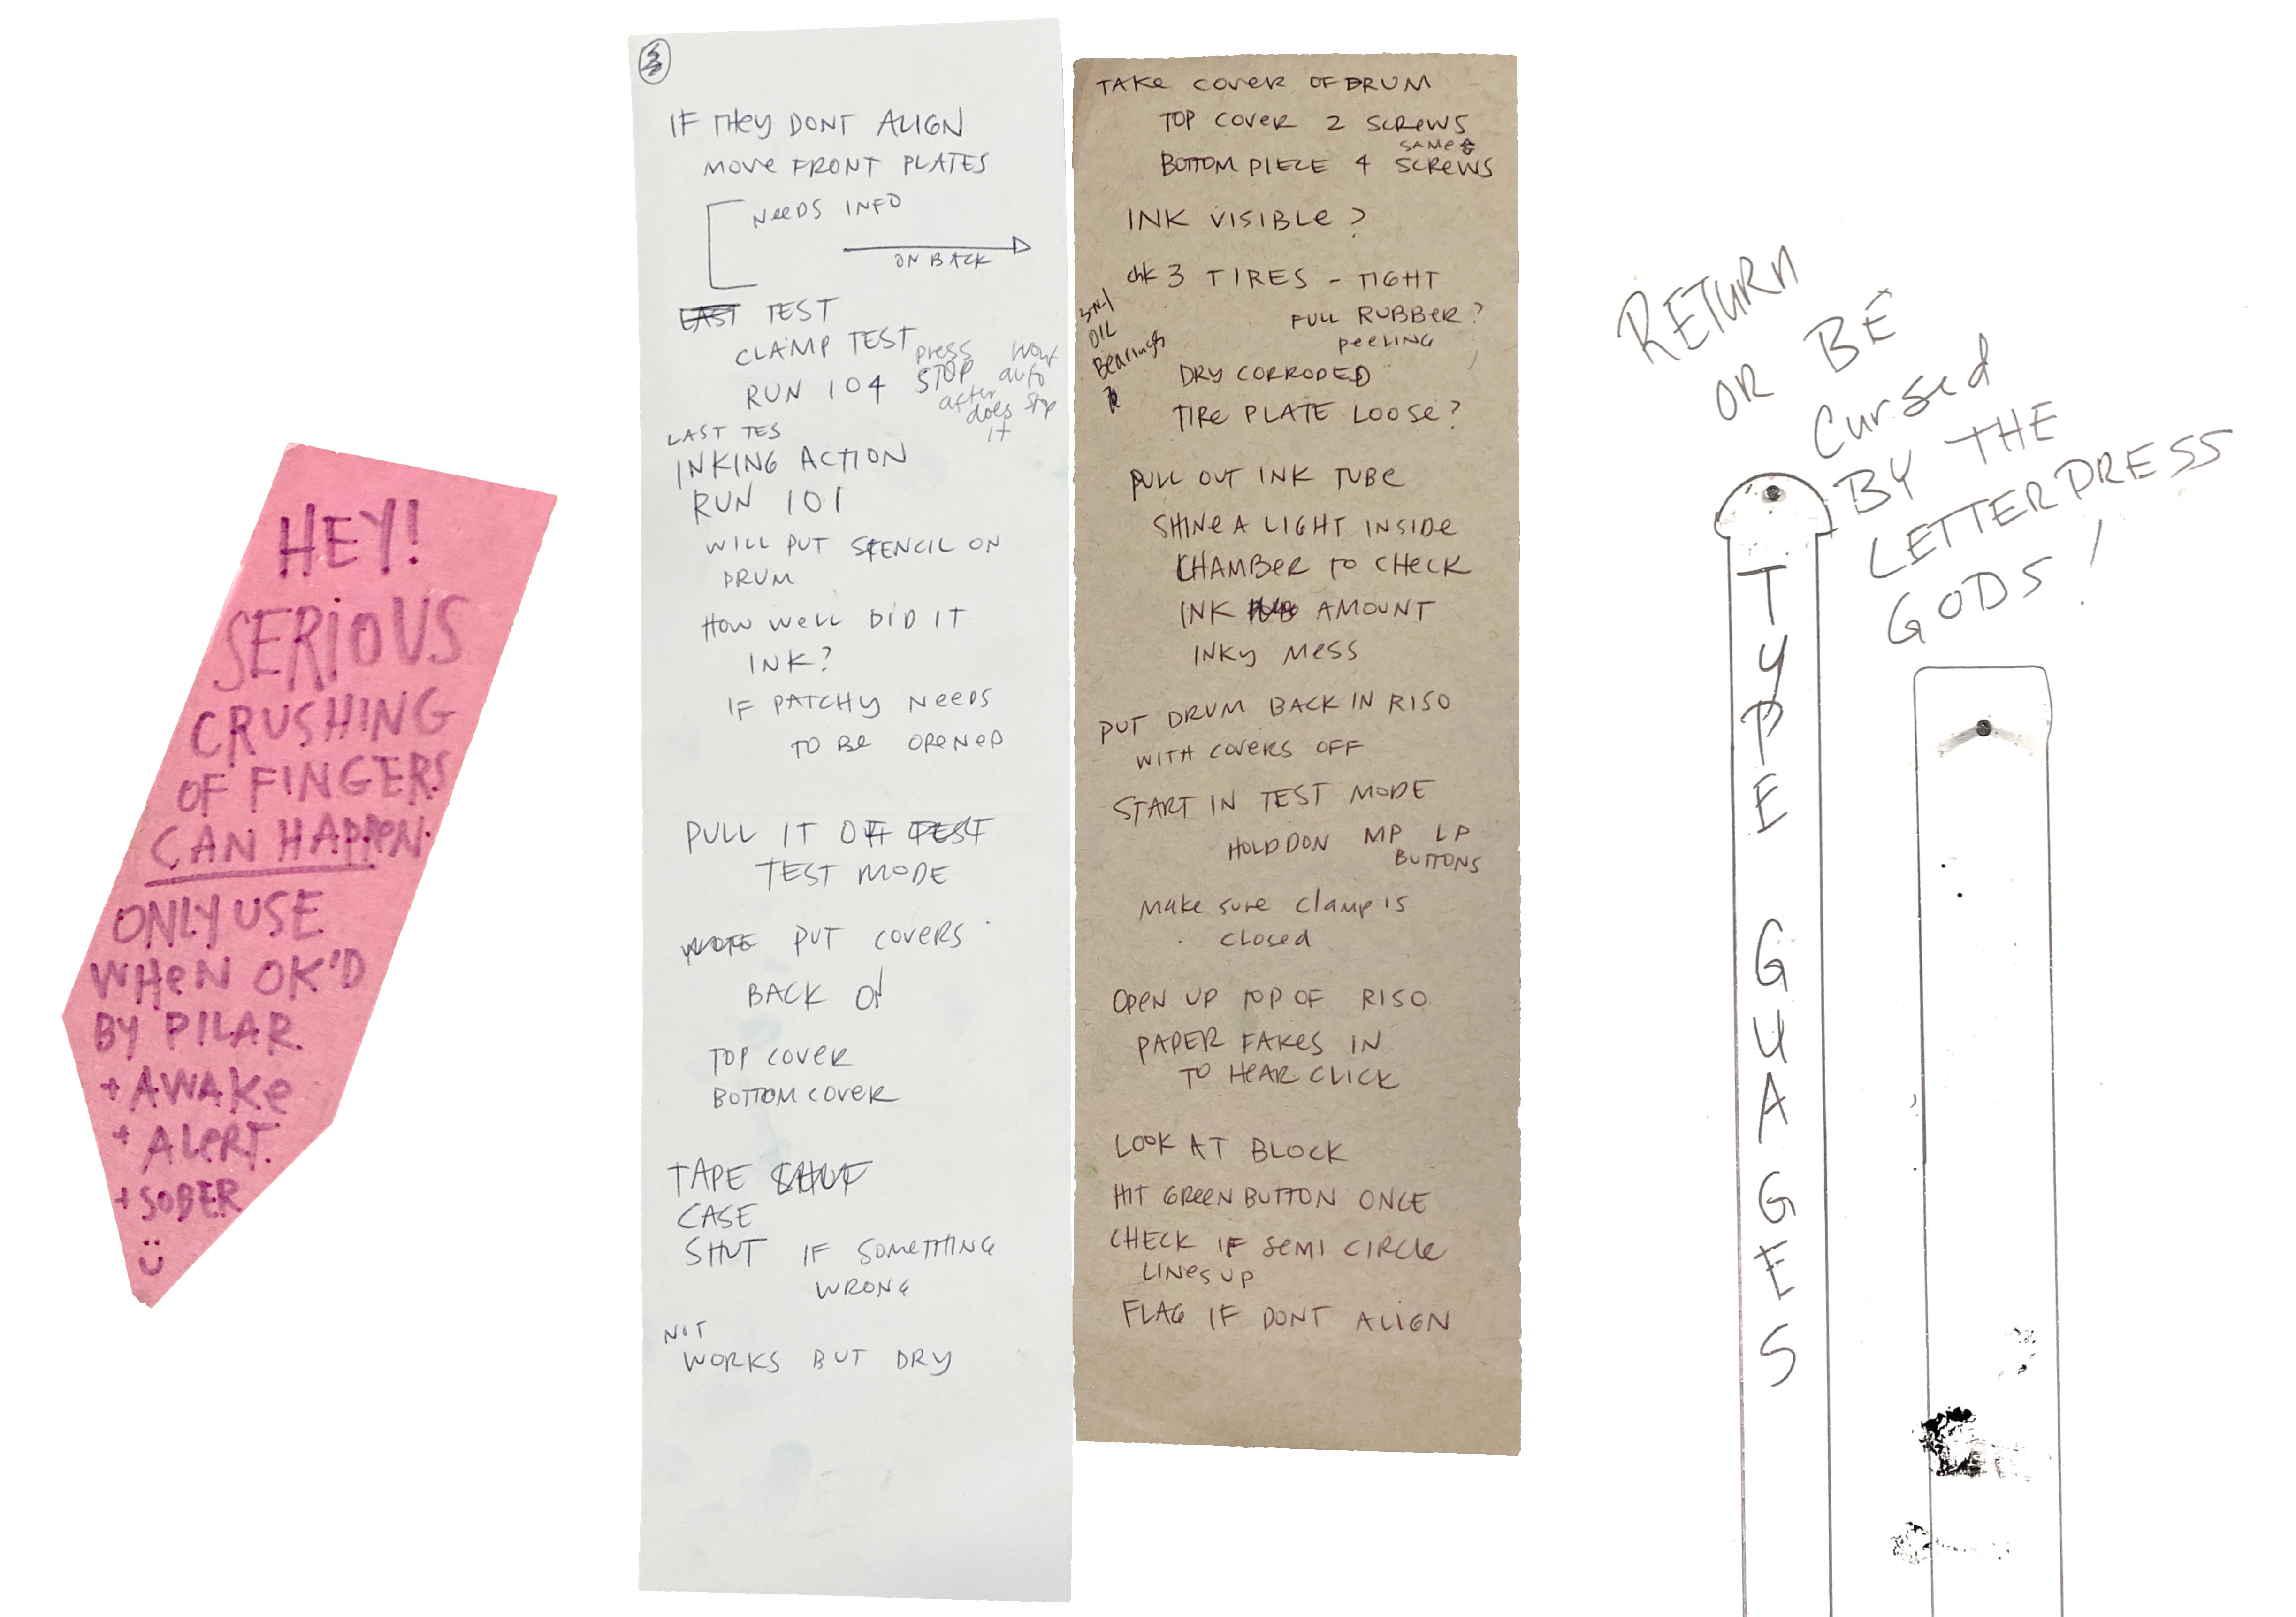 HEY!
SERIOUS
CRUSHING
OF FINGERS
CAN HAPPEN.
ONLY USE
WHEN OK'D
BY PILAR
+ AWAKE
+ ALERT.
+ SOBER
IF THEY DONT ALIGN
MOVE FRONT PLATES
NEEDS INFO
ON BACK
LAST TEST
CLAMP TEST
RUN 104
press
STOP
after
does
it
wont
auto
stop
LAST TES
INKING ACTION
RUN 101
WILL PUT STENCIL ON
DRUM
HOW WELL DID IT
INK?
IF PATCHY NEEDS
TO BE OPENED
PULL IT OF TEST
TEST MODE
PUT COVERS
BACK ON
TOP COVER
BOTTOM COVER
TAPE SHUT
CASE
SHUT IF SOMETHING
WRONG
NOT
WORKS BUT DRY
TAKE COVER OF DRUM
TOP COVER 2 SCREWS
SAME
BOTTOM PIECE 4 SCREWS
INK VISIBLE?
chk 3 TIRES - TIGHT
FULL RUBBER?
PEELING
OIL
Bearings
DRY CORRODED
TIRE PLATE LOOSE?
PULL OUT INK TUBE
SHINE A LIGHT INSIDE
CHAMBER TO CHECK
INK AMOUNT
INKY MESS
PUT DRUM BACK IN RISO
WITH COVERS OFF
START IN TEST MODE
HOLD DON MP LP
BUTTONS
Make sure clamp is
closed
OPEN UP TOP OF RISO
PAPER FAKES IN
TO HEAR CLICK
LOOK AT BLOCK
HIT GREEN BUTTON ONCE
CHECK IF SEMI CIRCLE
LINES UP
FLAG IF DONT ALIGN
RETURN
OR BE
Cursed
BY THE
LETTERPRESS
GODS!
TYPE GUAGES